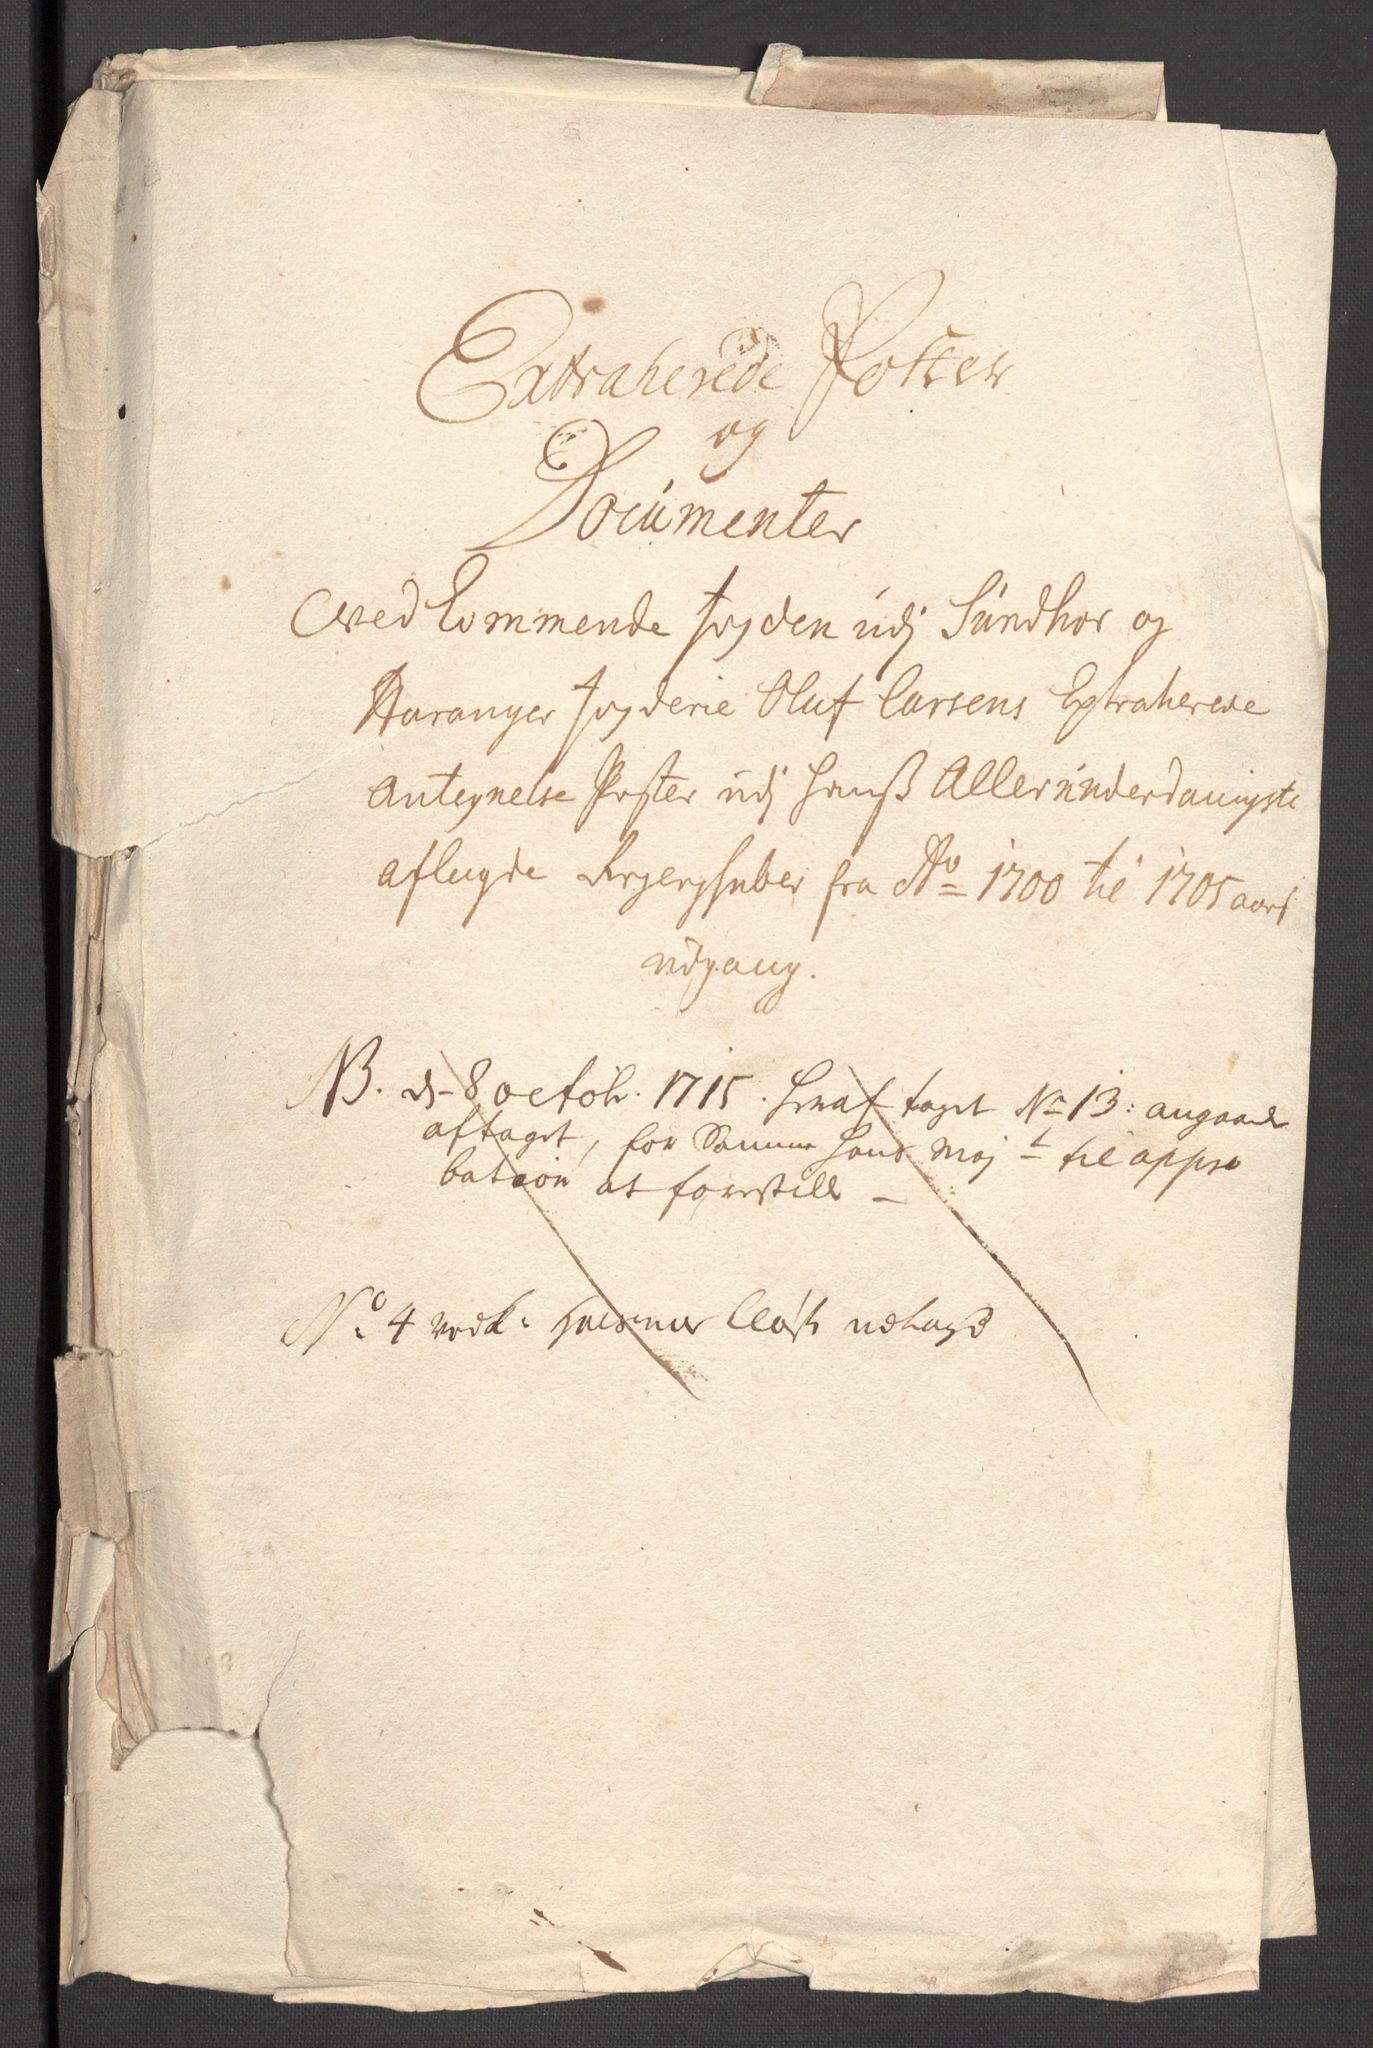 Extraherede Poster
og
Documenter
Vedkommende fogden udj Sundhor og
Haranger fogderie Oluf Larsens Extraherede
Antegnelse Poster udj hanß Allerunderdanigste
aflagde Regenskaber fra Ao 1700 til 1705 aars
udgang.
NB. d. 8 octobr. 1715. heraf taget No 13: angaaende
aftaget, for Samme hans Majt til appro
bation at forestille
No 4 vedk: Halsnøe Closter udtagd